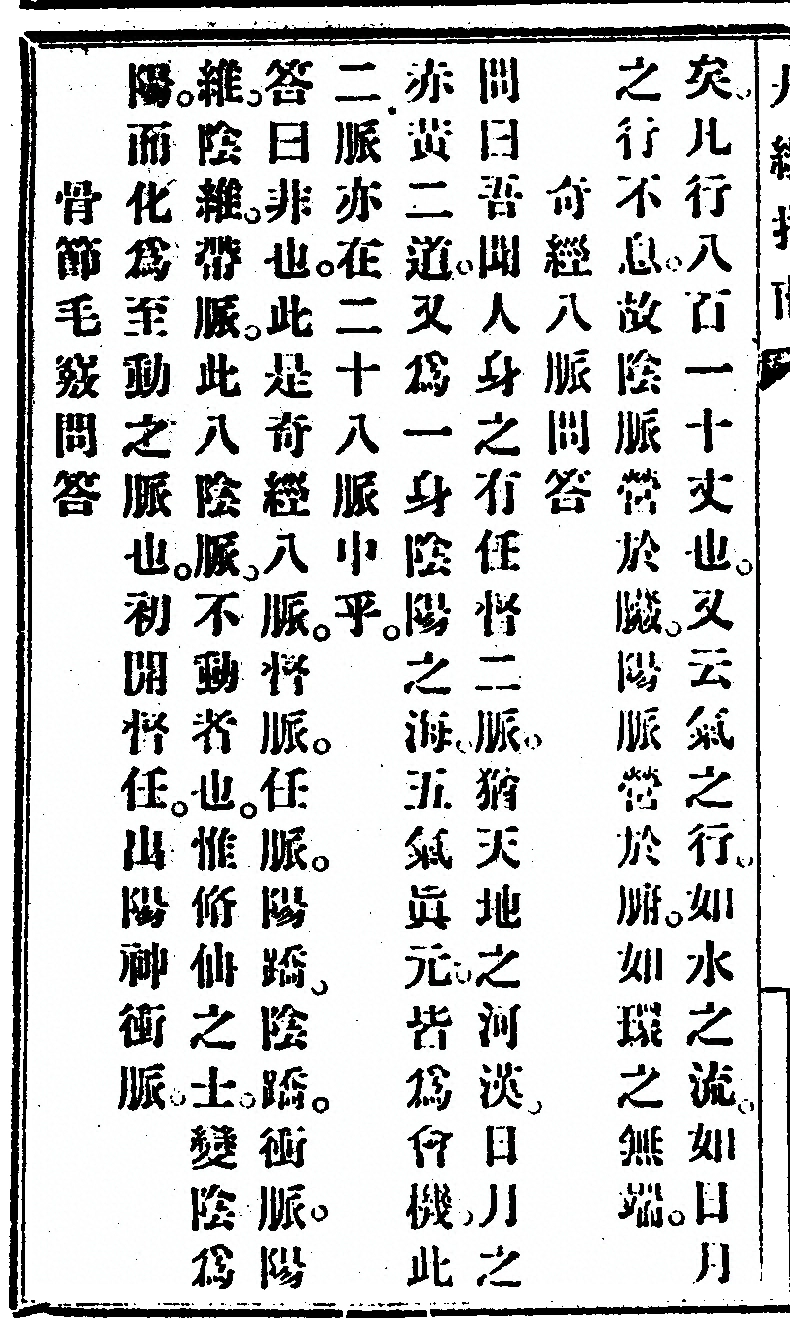 丹經指南
矣。凡行八百一十丈也。又云氣之行。如水之流。如日月
之行不息。故陰脈營於臟。陽脈營於腑。如環之無端。
奇經八脈問答
問曰吾聞人身之有任督二脈。猶天地之河漢。日月之
赤黃二道。又爲一身陰陽之海。五氣眞元。皆爲會機。此
二脈亦在二十八脈中乎。
答曰非也。此是奇經八脈。督脈。任脈。陽蹻。陰蹻。衝脈。陽
維。陰維。帶脈。此八陰脈。不動者也。惟脩仙之士。變陰爲
陽。而化爲至動之脈也。初開督任。出陽神衝脈。
骨節毛竅問答